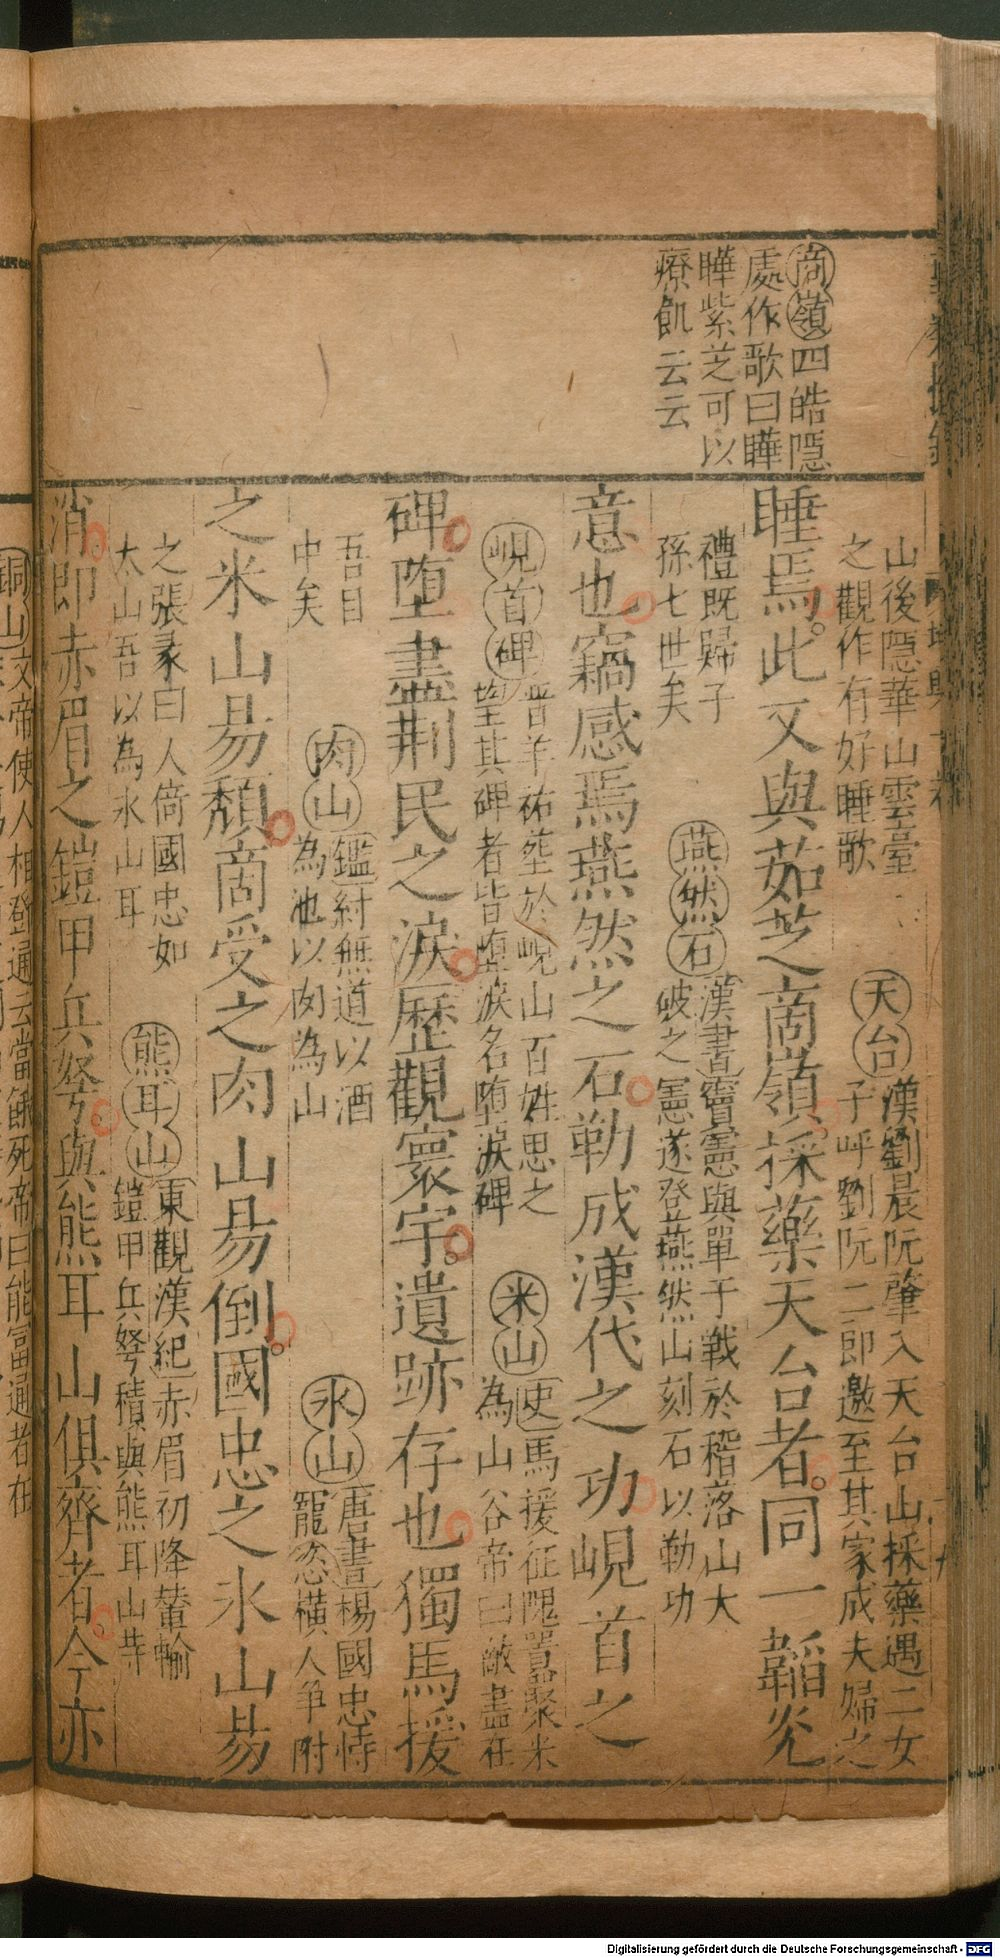 商嶺四皓隱
處作歌曰曄
曄紫芝可以
療飢云云
山後隱華山雲臺
之觀作有好睡歌
天台漢劉晨阮肇入天台山採藥遇二女
子呼劉阮二郎邀至其家成夫婦之
睡焉此又與茹芝商嶺採藥天台者同一韜光
禮既歸子
孫七世矣
燕然石漢書竇憲與單于戰於稽落山大
破之憲遂登燕然山刻石以勒功
意也竊感焉燕然之石勒成漢代之功峴首之
峴首碑晉羊祜塟於峴山百姓思之
望其碑者皆墮淚名墮淚碑
米山史馬援征隗囂聚米
為山谷帝曰敵盡在
碑墮盡荆民之淚歷觀寰宇遺跡存也獨馬援
吾目
中矣
肉山鑑紂無道以酒
為池以肉為山
氷山唐書楊國忠恃
寵恣橫人爭附
之米山易頹商受之肉山易倒國忠之氷山易
之張彖曰人倚國忠如
太山吾以為氷山耳
熊耳山東觀漢紀赤眉初降輦輸
鎧甲兵弩積與熊耳山等
消即赤眉之鎧甲兵弩與熊耳山俱齊者今亦
銅山文帝使人相登通云當餓死帝曰能富通者在
Digitalisierung gefördert durch die Deutsche Forschungsgemeinschaft - DFG